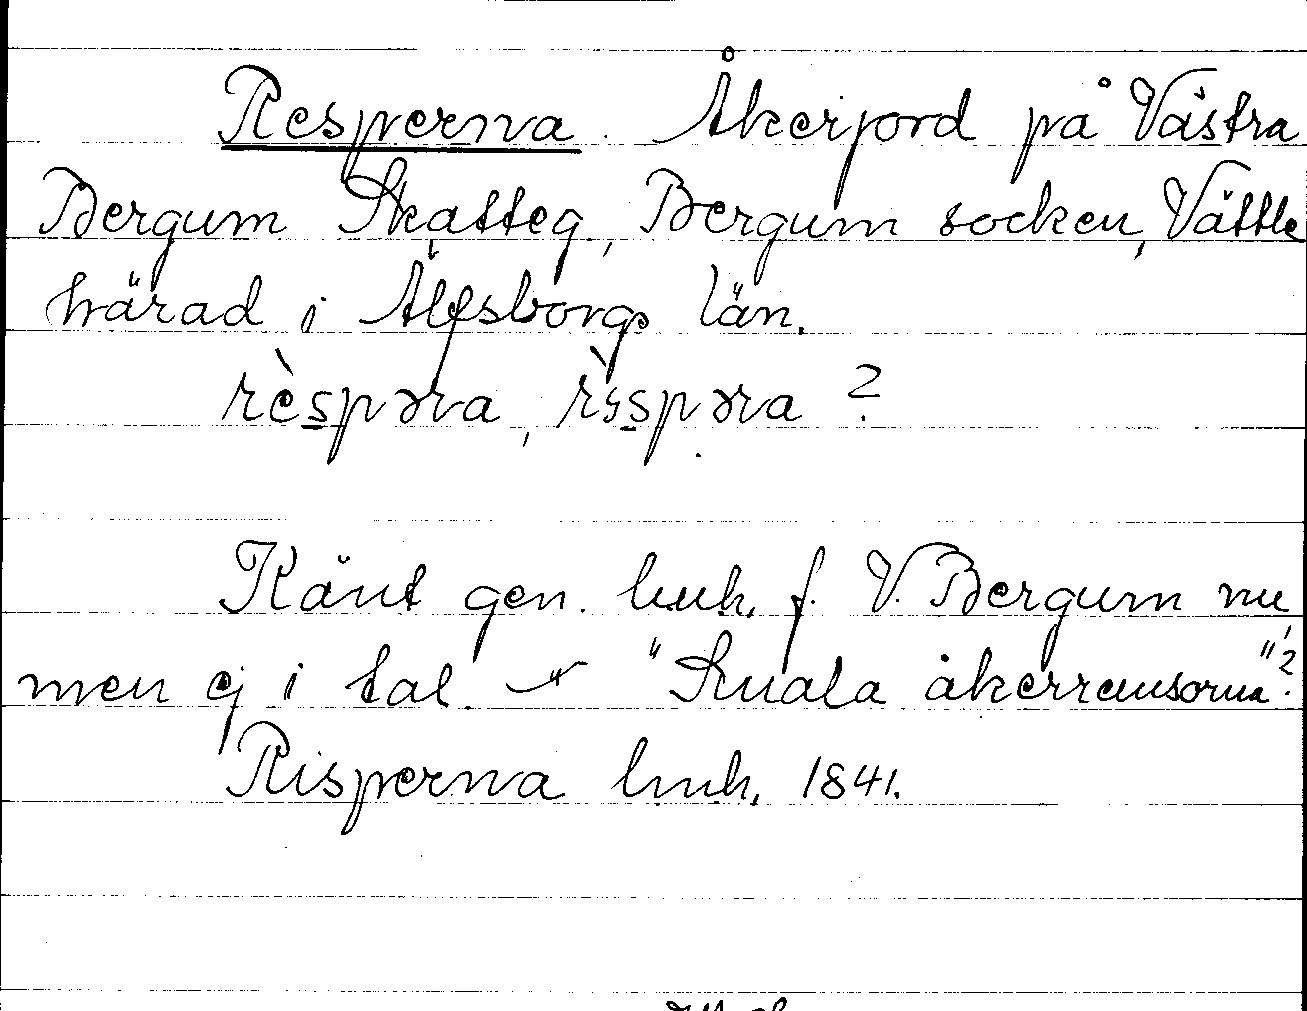 Resperna. Åkerjord på Västra
Bergum Skatteg, Bergum socken, Vättle
härad i Älfsborgs län.
rèspəra, rı̀spəra ?
Känt gen. lmh. f. V. Bergum nu,
men ej i tal. "Smala åkerremsorna"?
Risperna lmh. 1841.